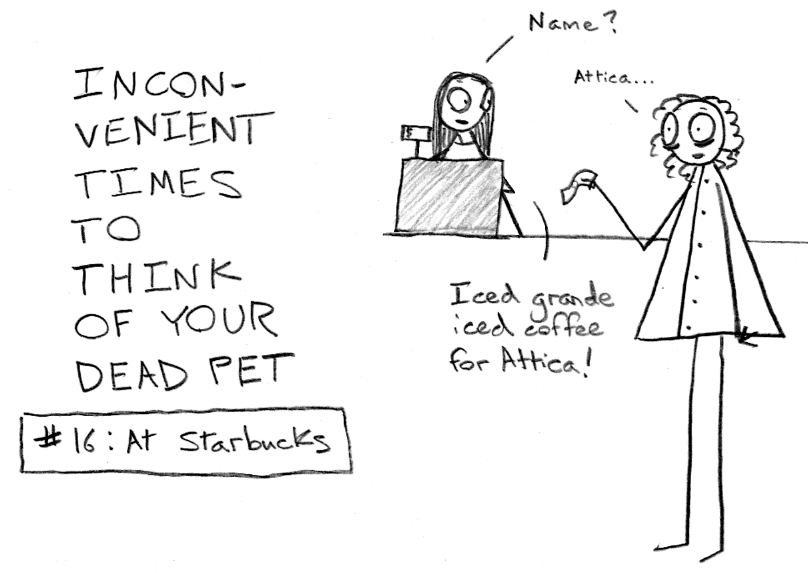 INCON-
VENIENT
TIMES
TO
THINK
OF YOUR
DEAD PET
#16: At Starbucks
Name?
Attica...
$
Iced grande
iced coffee
for Attica!